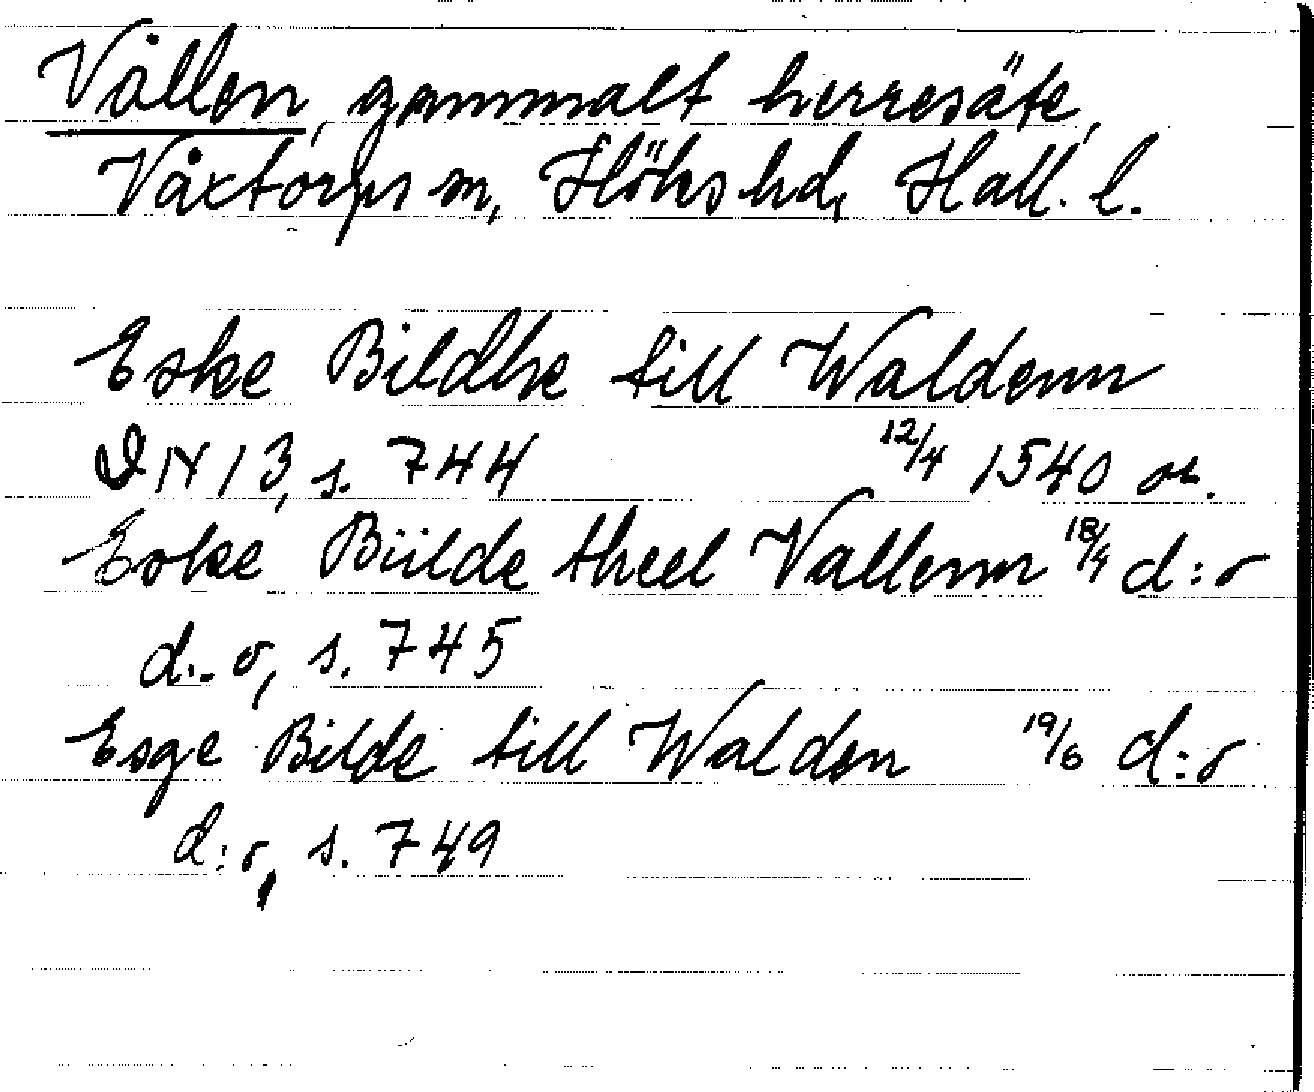 Vållen, gammalt herresäte,
Våxtorps sn, Höks hd, Hall. l.
Eske Bildhe till Waldenn
DN 13, s. 744 12/4 1540 or.
Eske Biilde theel Vallenn 18/4 d:o
d:o, s. 745
Esge Bilde till Walden 19/6 d:o
d:o, s. 749